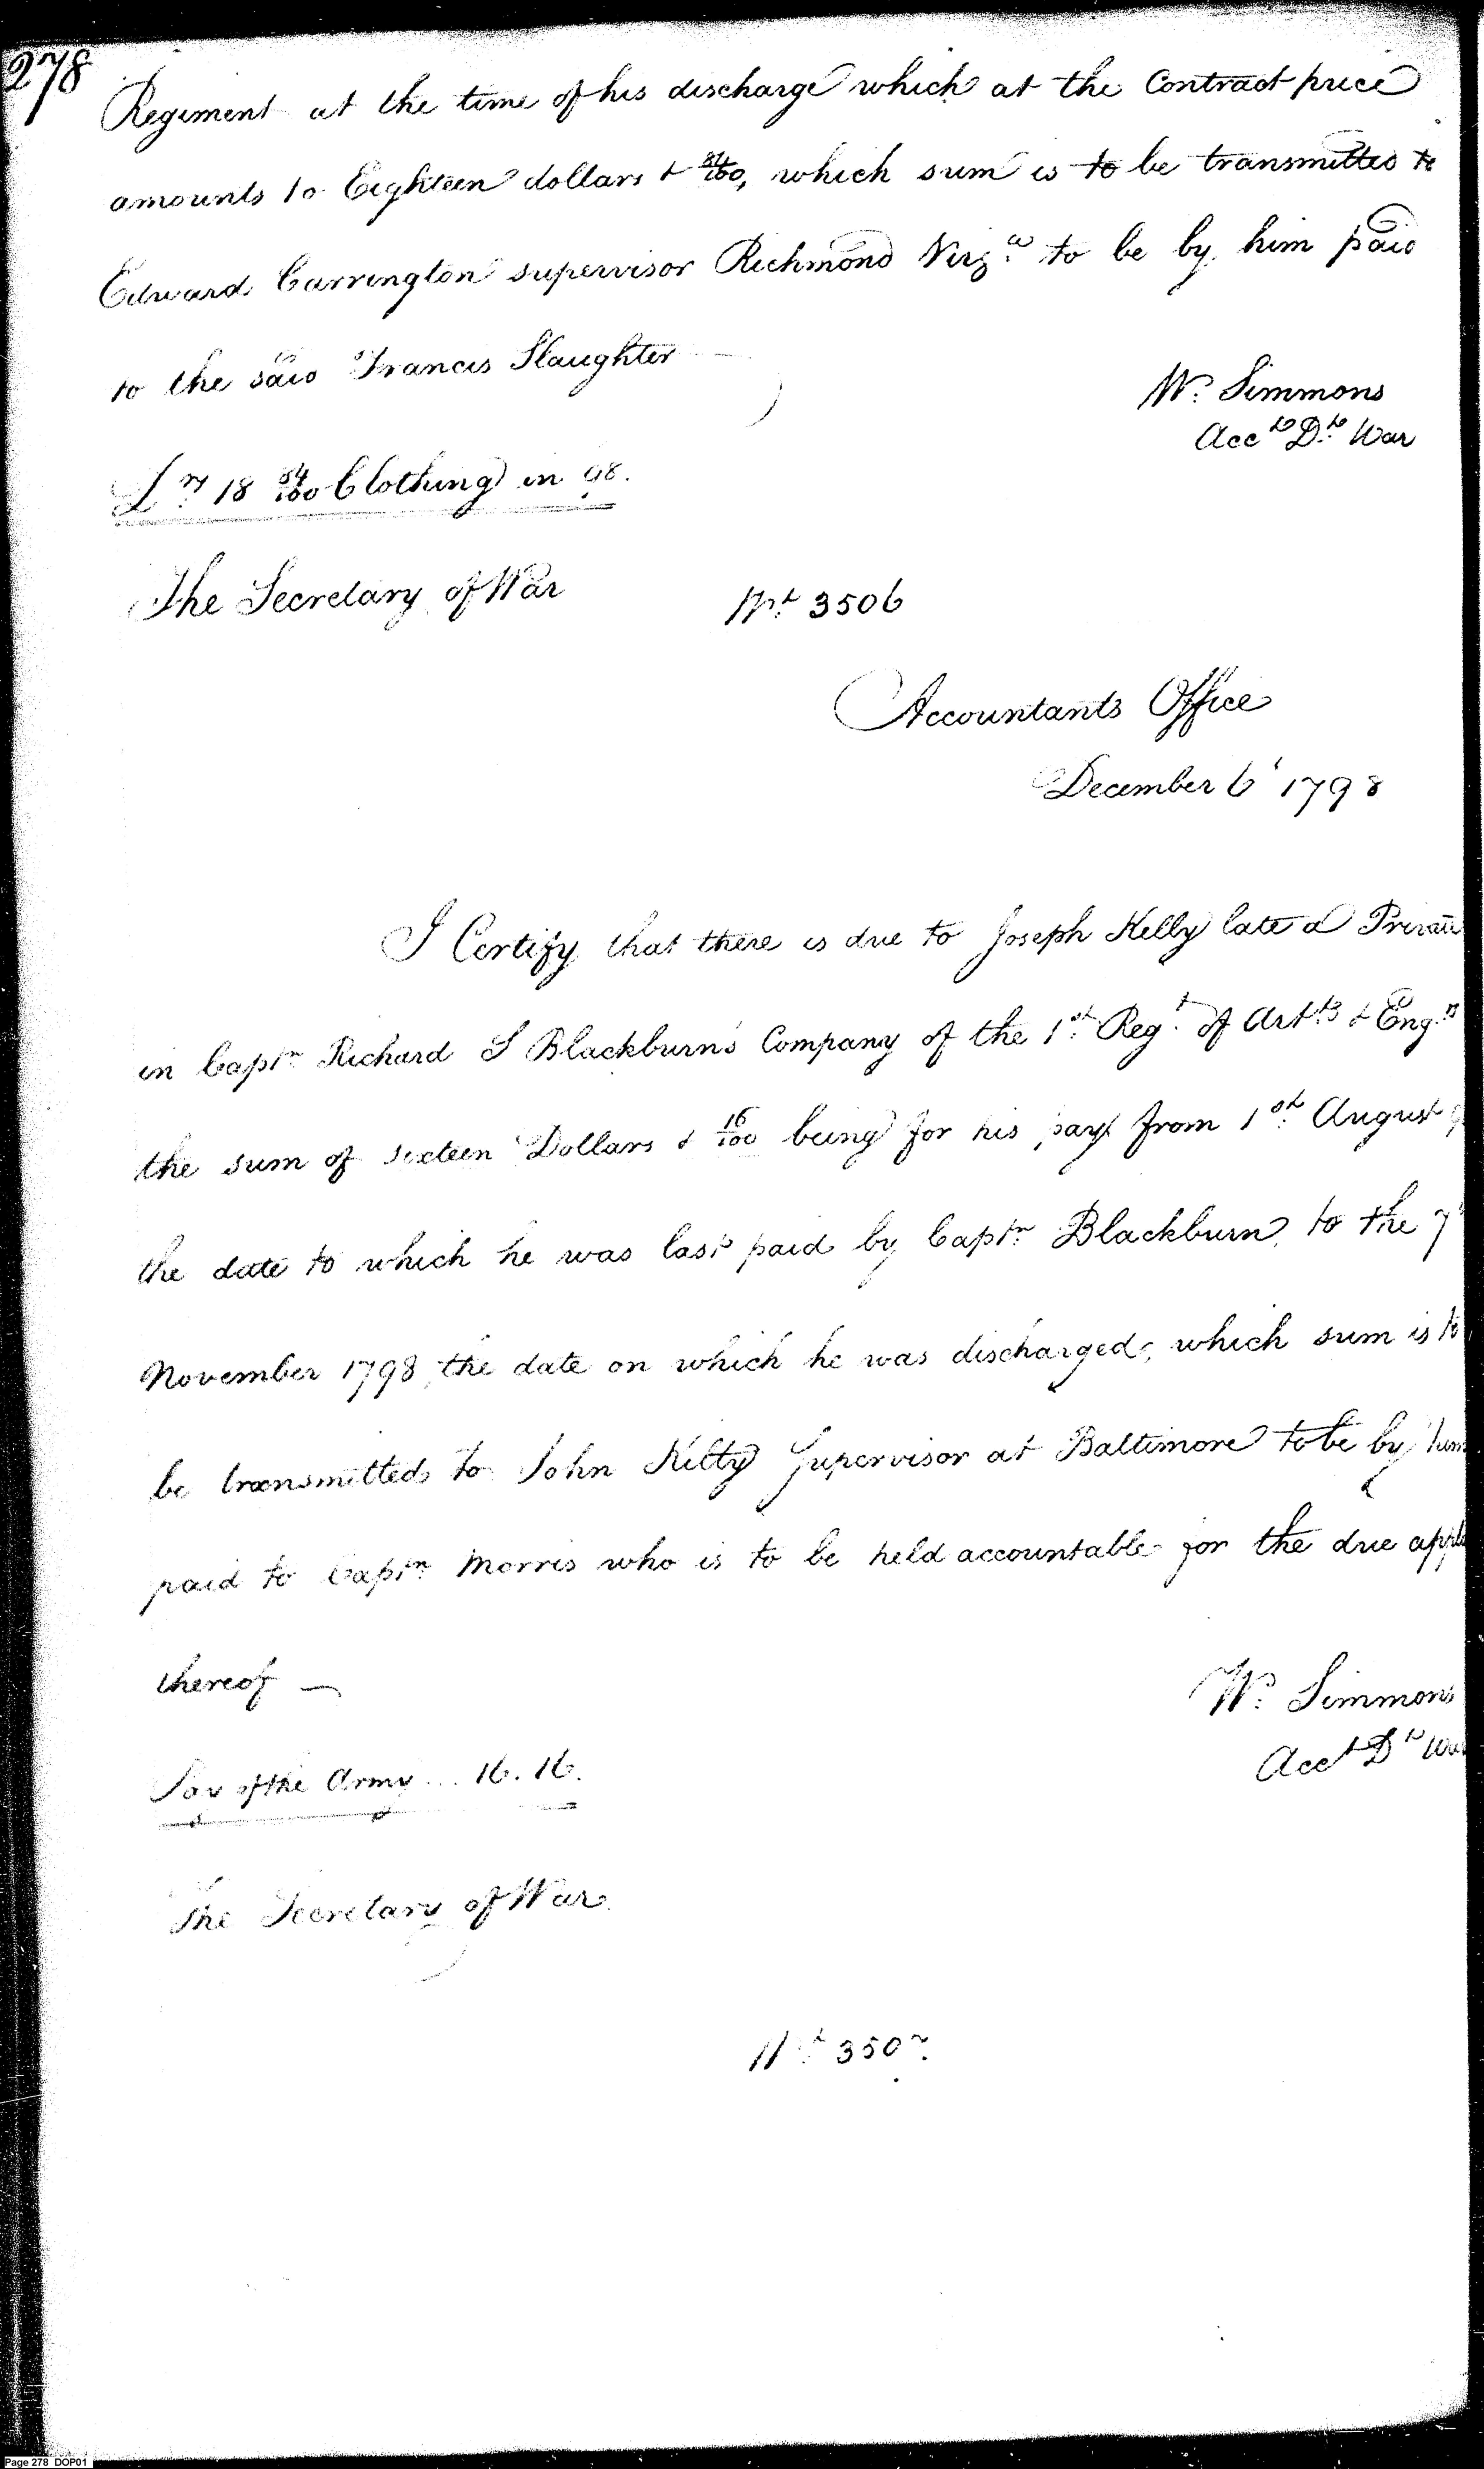 278
Regiment at the time of his discharge which at the Contract price
amounts to Eighteen dollars & 84/100, which sum is to be transmitted to
Edward Carrington supervisor Richmond Virga to be by him paid
to the said Francis Slaughter
Wm Simmons
Acct Dt War
18 84/100 Clothing in 98.
The Secretary of War
Wt 3506
Accountants Office
December 6 1798
I Certify that there is due to Joseph Kelly late a Private
in Captn Richard S Blackburn's Company of the 1st Regt of Artts & Engrs
the sum of sixteen Dollars & 16/100 being for his pay from 1st August
the date to which he was last paid by Captn Blackburn to the 7
November 1798 the date on which he was discharged, which sum is to
be transmitted to John Kilty Supervisor at Baltimore to be by him
paid to Captn Morris who is to be held accountable for the due
thereof —
Wm Simmons
Acct Dt War
Pay of the Army ... 16.16.
The Secretary of War
Wt 350
Page 278 DOP01